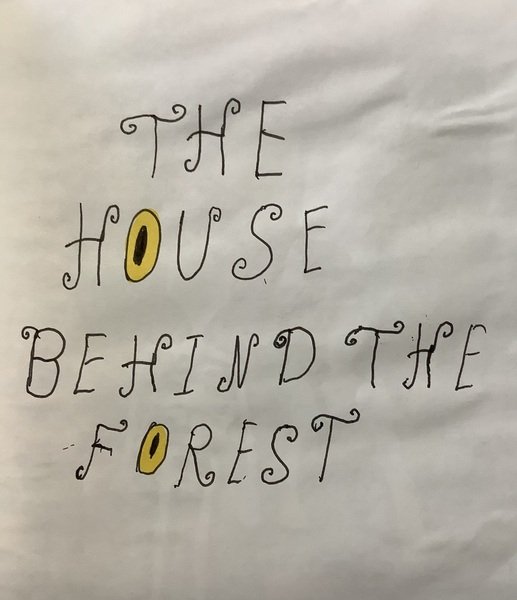 THE
HOUSE
BEHIND THE
FOREST